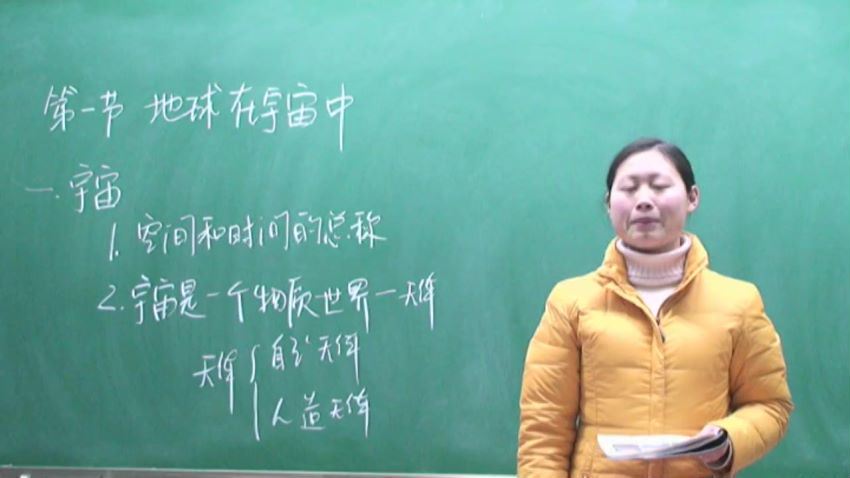 第一节 地球在宇宙中
一.宇宙
1. 空间和时间的总称
2. 宇宙是一个物质世界一天体
天体{自然天体
人造天体